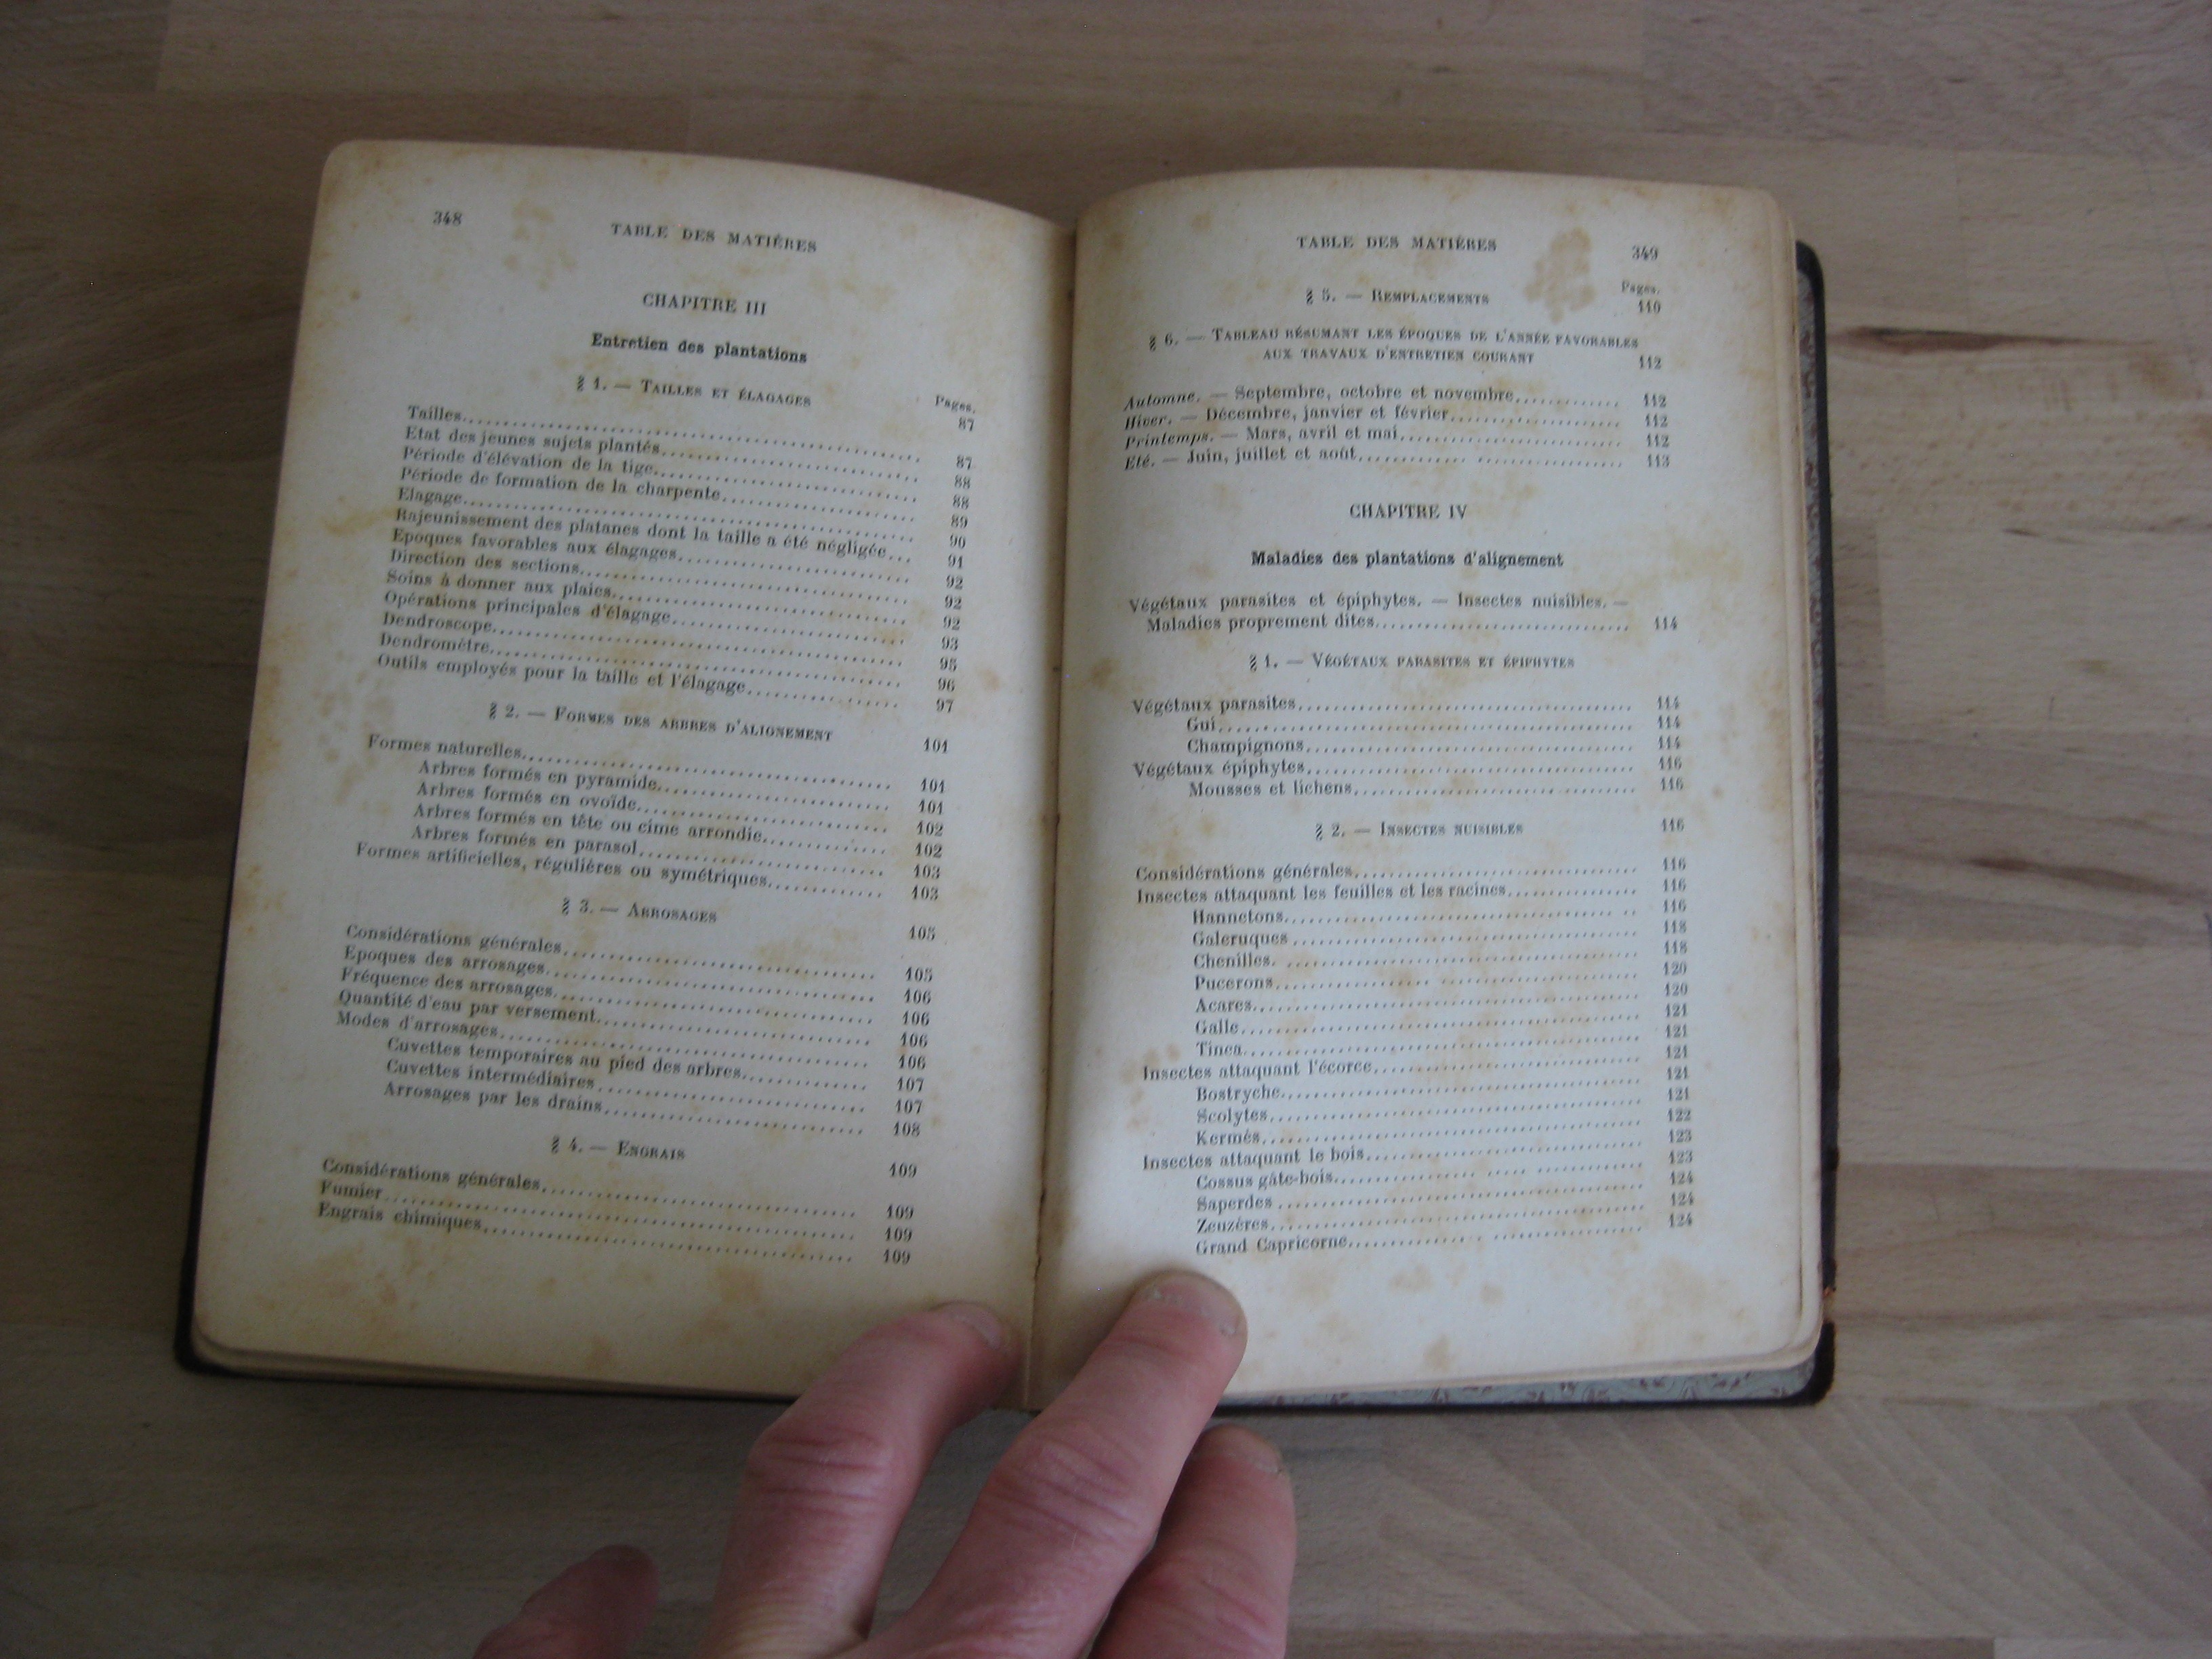 348
TABLE DES MATIÈRES
CHAPITRE III
Entretien des plantations
§ 1. — TAILLES ET ÉLAGAGES
Pages.
87
Tailles........ 87
Etat des jeunes sujets plantés........ 88
Période d'élévation de la tige........ 88
Période de formation de la charpente........ 89
Elagage........ 90
Rajeunissement des platanes dont la taille a été négligée... 91
Epoques favorables aux élagages........ 92
Direction des sections........ 92
Soins à donner aux plaies........ 92
Opérations principales d'élagage........ 93
Dendroscope........ 95
Dendromètre........ 96
Outils employés pour la taille et l'élagage........ 97
§ 2. — FORMES DES ARBRES D'ALIGNEMENT 101
Formes naturelles........ 101
Arbres formés en pyramide........ 101
Arbres formés en ovoïde........ 102
Arbres formés en tête ou cime arrondie........ 102
Arbres formés en parasol........ 103
Formes artificielles, régulières ou symétriques........ 103
§ 3. — ARROSAGES 105
Considérations générales........ 105
Epoques des arrosages........ 106
Fréquence des arrosages........ 106
Quantité d'eau par versement........ 106
Modes d'arrosages........ 106
Cuvettes temporaires au pied des arbres........ 107
Cuvettes intermédiaires........ 107
Arrosages par les drains........ 108
§ 4. — ENGRAIS 109
Considérations générales........ 109
Fumier........ 109
Engrais chimiques........ 109
TABLE DES MATIÈRES
349
Pages.
§ 5. — REMPLACEMENTS 110
§ 6. — TABLEAU RÉSUMANT LES ÉPOQUES DE L'ANNÉE FAVORABLES
AUX TRAVAUX D'ENTRETIEN COURANT 112
Automne. — Septembre, octobre et novembre........ 112
Hiver. — Décembre, janvier et février........ 112
Printemps. — Mars, avril et mai........ 112
Eté. — Juin, juillet et août........ 113
CHAPITRE IV
Maladies des plantations d'alignement
Végétaux parasites et épiphytes. — Insectes nuisibles. —
Maladies proprement dites........ 114
§ 1. — VÉGÉTAUX PARASITES ET ÉPIPHYTES
Végétaux parasites........ 114
Gui........ 114
Champignons........ 114
Végétaux épiphytes........ 116
Mousses et lichens........ 116
§ 2. — INSECTES NUISIBLES 116
Considérations générales........ 116
Insectes attaquant les feuilles et les racines........ 116
Hannetons........ 116
Galeruques........ 118
Chenilles........ 118
Pucerons........ 120
Acares........ 120
Galle........ 121
Tinea........ 121
Insectes attaquant l'écorce........ 121
Bostryche........ 121
Scolytes........ 121
Kermès........ 122
Insectes attaquant le bois........ 123
Cossus gâte-bois........ 123
Saperdes........ 124
Zeuzères........ 124
Grand Capricorne........ 124